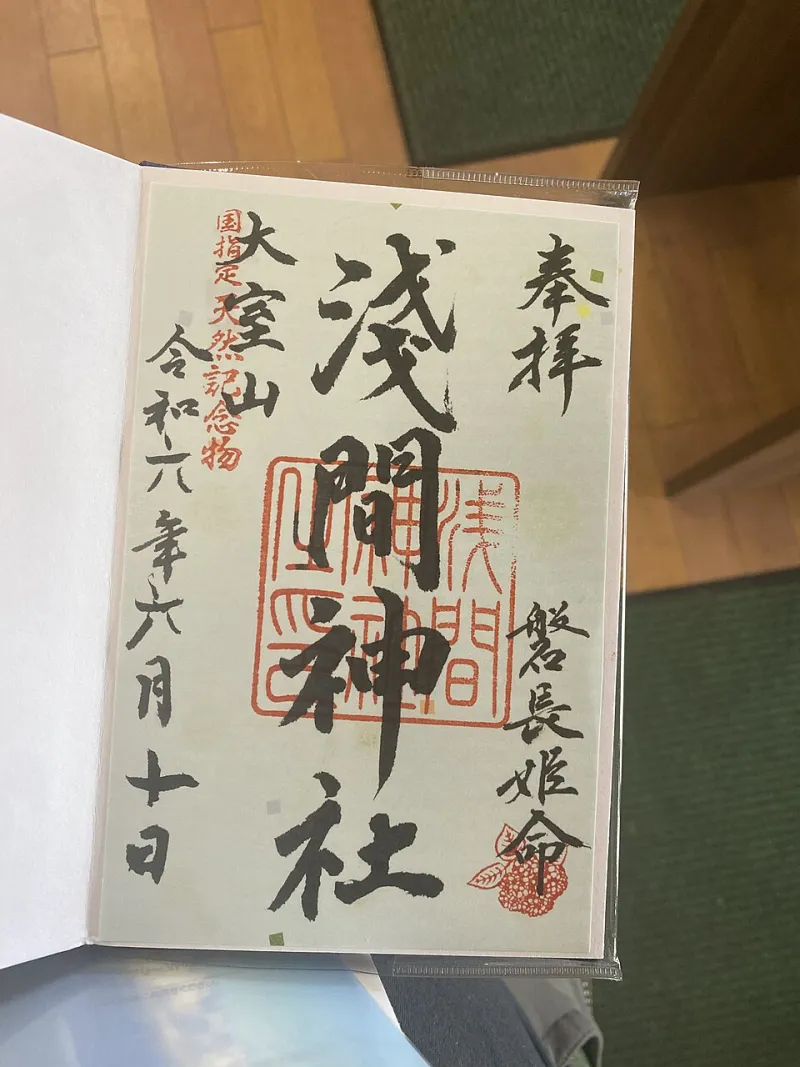 奉拝
磐長姫命
淺間神社
浅間
神社
之印
大室山
国指定天然記念物
令和六年六月十日